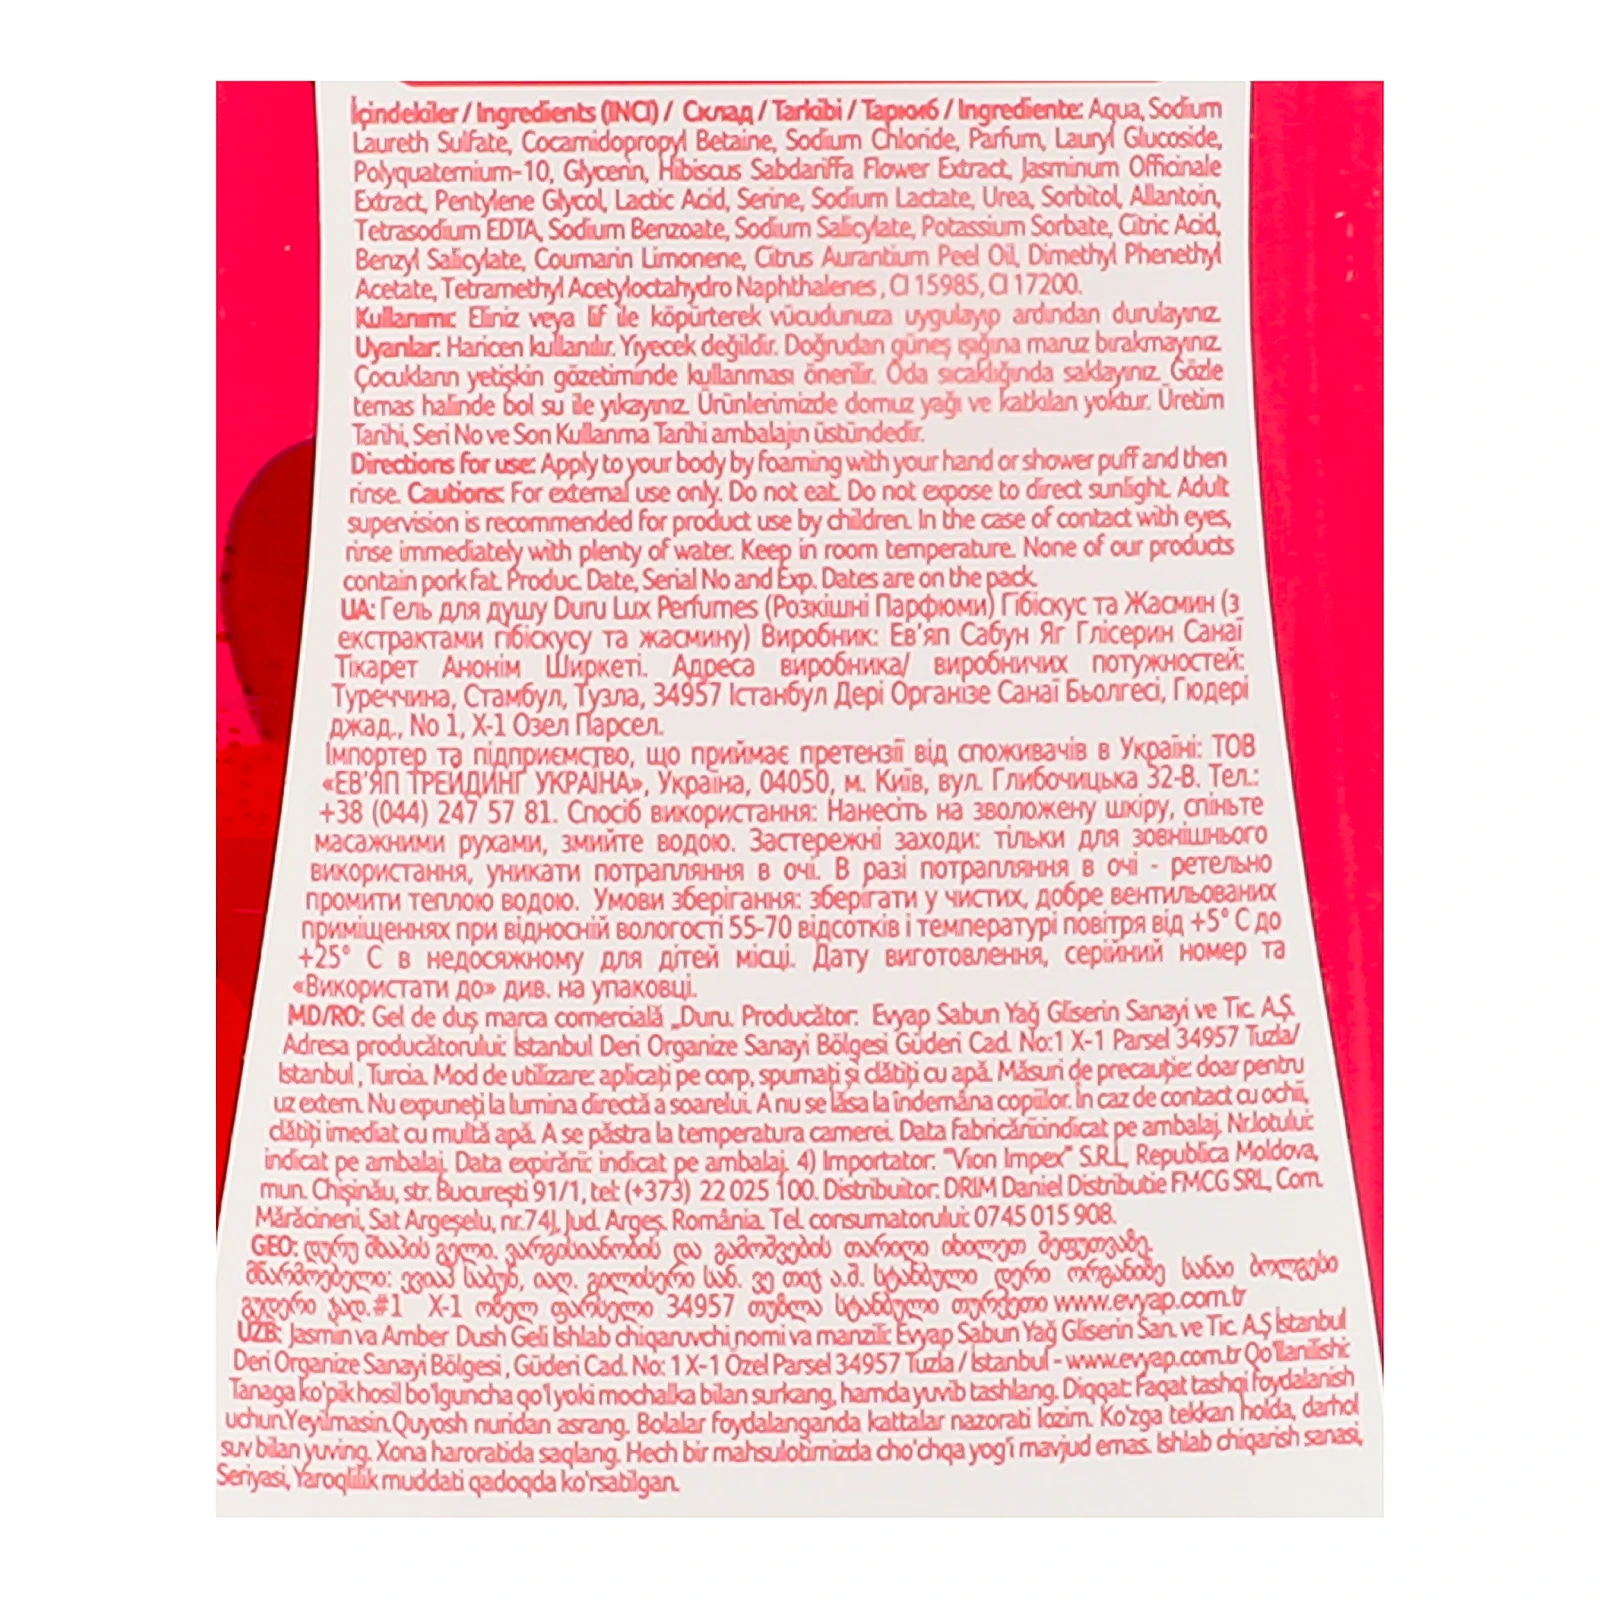 İçindekiler / Ingredients (INCI) / Склад / Tarkibi / Таркиб / Ingrediente: Aqua, Sodium
Laureth Sulfate, Cocamidopropyl Betaine, Sodium Chloride, Parfum, Lauryl Glucoside,
Polyquaternium-10, Glycerin, Hibiscus Sabdariffa Flower Extract, Jasminum Officinale
Extract, Pentylene Glycol, Lactic Acid, Serine, Sodium Lactate, Urea, Sorbitol, Allantoin,
Tetrasodium EDTA, Sodium Benzoate, Sodium Salicylate, Potassium Sorbate, Citric Acid,
Benzyl Salicylate, Coumarin Limonene, Citrus Aurantium Peel Oil, Dimethyl Phenethyl
Acetate, Tetramethyl Acetyloctahydro Naphthalenes , CI 15985, CI 17200.
Kullanımı: Eliniz veya lif ile köpürterek vücudunuza uygulayıp ardından durulayınız.
Uyarılar: Haricen kullanılır. Yiyecek değildir. Doğrudan güneş ışığına maruz bırakmayınız.
Çocukların yetişkin gözetiminde kullanması önerilir. Oda sıcaklığında saklayınız. Gözle
temas halinde bol su ile yıkayınız. Ürünlerimizde domuz yağı ve katkıları yoktur. Üretim
Tarihi, Seri No ve Son Kullanma Tarihi ambalajın üstündedir.
Directions for use: Apply to your body by foaming with your hand or shower puff and then
rinse. Cautions: For external use only. Do not eat. Do not expose to direct sunlight. Adult
supervision is recommended for product use by children. In the case of contact with eyes,
rinse immediately with plenty of water. Keep in room temperature. None of our products
contain pork fat. Produc. Date, Serial No and Exp. Dates are on the pack.
UA: Гель для душу Duru Lux Perfumes (Розкішні Парфюми) Гібіскус та Жасмин (з
екстрактами гібіскусу та жасмину) Виробник: Ев'яп Сабун Яг Глісерин Санаї
Тікарет Анонім Ширкеті. Адреса виробника/ виробничих потужностей:
Туреччина, Стамбул, Тузла, 34957 Істанбул Дері Організе Санаї Бьолгесі, Гюдері
джад., No 1, Х-1 Озел Парсел.
Імпортер та підприємство, що приймає претензії від споживачів в Україні: ТОВ
«ЕВ'ЯП ТРЕЙДИНГ УКРАЇНА», Україна, 04050, м. Київ, вул. Глибочицька 32-В. Тел.:
+38 (044) 247 57 81. Спосіб використання: Нанесіть на зволожену шкіру, спіньте
масажними рухами, змийте водою. Застережні заходи: тільки для зовнішнього
використання, уникати потрапляння в очі. В разі потрапляння в очі - ретельно
промити теплою водою. Умови зберігання: зберігати у чистих, добре вентильованих
приміщеннях при відносній вологості 55-70 відсотків і температурі повітря від +5° С до
+25° С в недосяжному для дітей місці. Дату виготовлення, серійний номер та
«Використати до» див. на упаковці.
MD/RO: Gel de duș marca comercială „Duru. Producător: Evyap Sabun Yağ Gliserin Sanayi ve Tic. A.Ş.
Adresa producătorului: İstanbul Deri Organize Sanayi Bölgesi Güderi Cad. No:1 X-1 Parsel 34957 Tuzla/
Istanbul , Turcia. Mod de utilizare: aplicați pe corp, spumați și clătiți cu apă. Măsuri de precauție: doar pentru
uz extern. Nu expuneți la lumina directă a soarelui. A nu se lăsa la îndemâna copiilor. În caz de contact cu ochii,
clătiți imediat cu multă apă. A se păstra la temperatura camerei. Data fabricării:indicat pe ambalaj. Nr.lotului:
indicat pe ambalaj. Data expirării: indicat pe ambalaj. 4) Importator: "Vion Impex" S.R.L, Republica Moldova,
mun. Chișinău, str. București 91/1, tel: (+373) 22 025 100. Distribuitor: DRIM Daniel Distributie FMCG SRL, Com.
Mărăcineni, Sat Argeșelu, nr.74J, Jud. Argeș. România. Tel. consumatorului: 0745 015 908.
GEO: დურუ შხაპის გელი. ვარგისიანობის და გამოშვების თარიღი იხილეთ შეფუთვაზე.
მწარმოებელი: ევიაპ საბუნ, იაღ. გილისერი სან. ვე თიჯ ა.შ. სტანბული დერი ორგანიზე სანაი ბოლგესი
გუდერი ჯად.#1 X-1 ოზელ ფარსელი 34957 თუზლა სტანბული თურქეთი www.evyap.com.tr
UZB: Jasmin va Amber Dush Geli Ishlab chiqaruvchi nomi va manzili: Evyap Sabun Yağ Gliserin San. ve Tic. A.Ş İstanbul
Deri Organize Sanayi Bölgesi , Güderi Cad. No: 1 X-1 Özel Parsel 34957 Tuzla / İstanbul - www.evyap.com.tr Qo'llanilishi:
Tanaga ko'pik hosil bo'lguncha qo'l yoki mochalka bilan surkang, hamda yuvib tashlang. Diqqat: Faqat tashqi foydalanish
uchun.Yeyilmasin.Quyosh nuridan asrang. Bolalar foydalanganda kattalar nazorati lozim. Ko'zga tekkan holda, darhol
suv bilan yuving. Xona haroratida saqlang. Hech bir mahsulotimizda cho'chqa yog'i mavjud emas. Ishlab chiqarish sanasi,
Seriyasi, Yaroqlilik muddati qadoqda ko'rsatilgan.